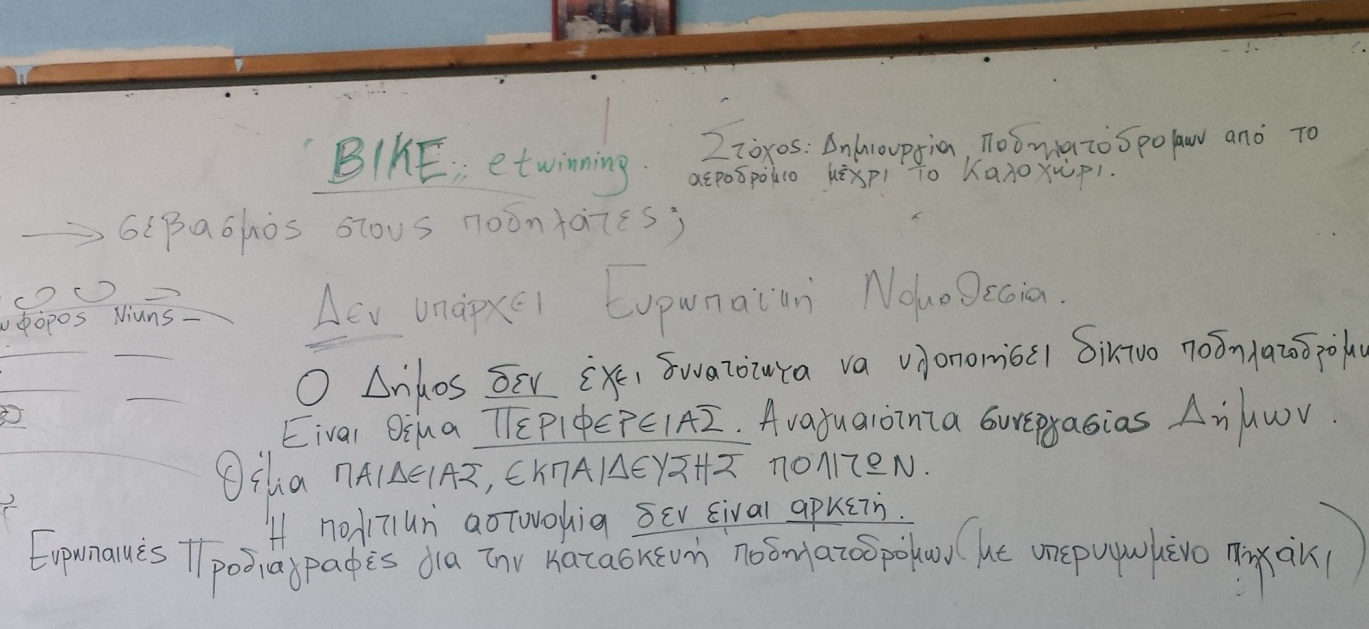 BIKE :, etwinning. Στόχος: Δημιουργία ποδηλατόδρομων από το
αεροδρόμιο μέχρι το Καλοχώρι.
→ σεβασμός στους ποδηλάτες;
φόρος Νίκης –
Δεν υπάρχει Ευρωπαϊκή Νομοθεσία.
Ο Δήμος δεν έχει δυνατότητα να υλοποιήσει δίκτυο ποδηλατοδρόμω
Είναι θέμα ΠΕΡΙΦΕΡΕΙΑΣ. Αναγκαιότητα συνεργασίας Δήμων.
Θέμα ΠΑΙΔΕΙΑΣ, ΕΚΠΑΙΔΕΥΣΗΣ ΠΟΛΙΤΩΝ.
Η πολιτική αστυνομία δεν είναι αρκετή.
Ευρωπαικές Προδιαγραφές για την κατασκευή ποδηλατοδρόμων (με υπερυψωμένο πηχάκι)